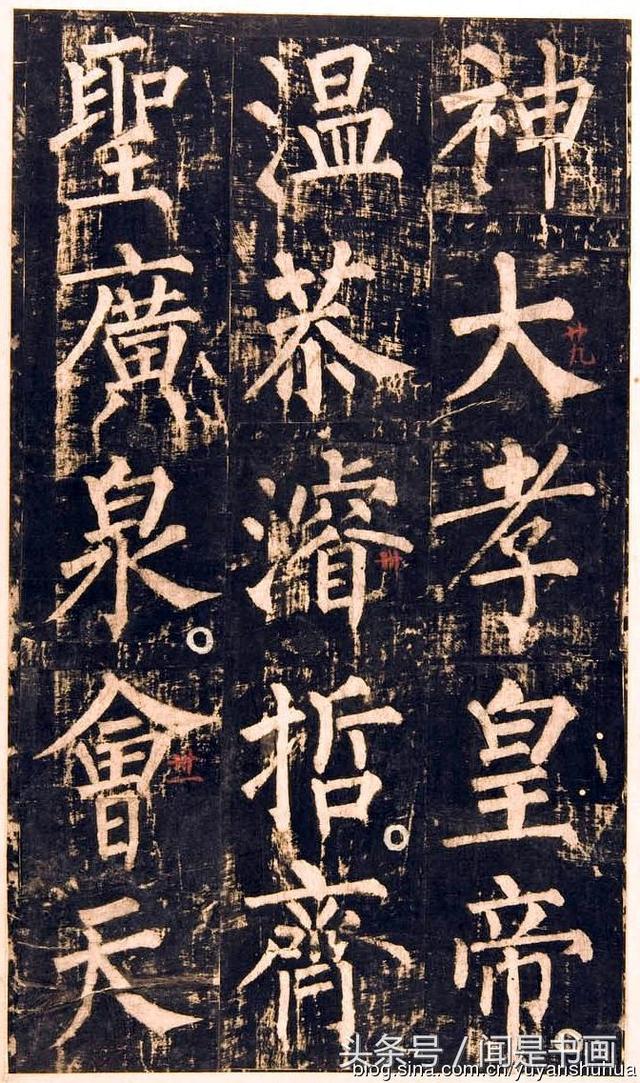 神大孝皇帝
温恭濬哲齊
聖廣泉會天
廿九
卅
卅一
头条号 / 闻是书画
blog.sina.com.cn/yuyanshuhua